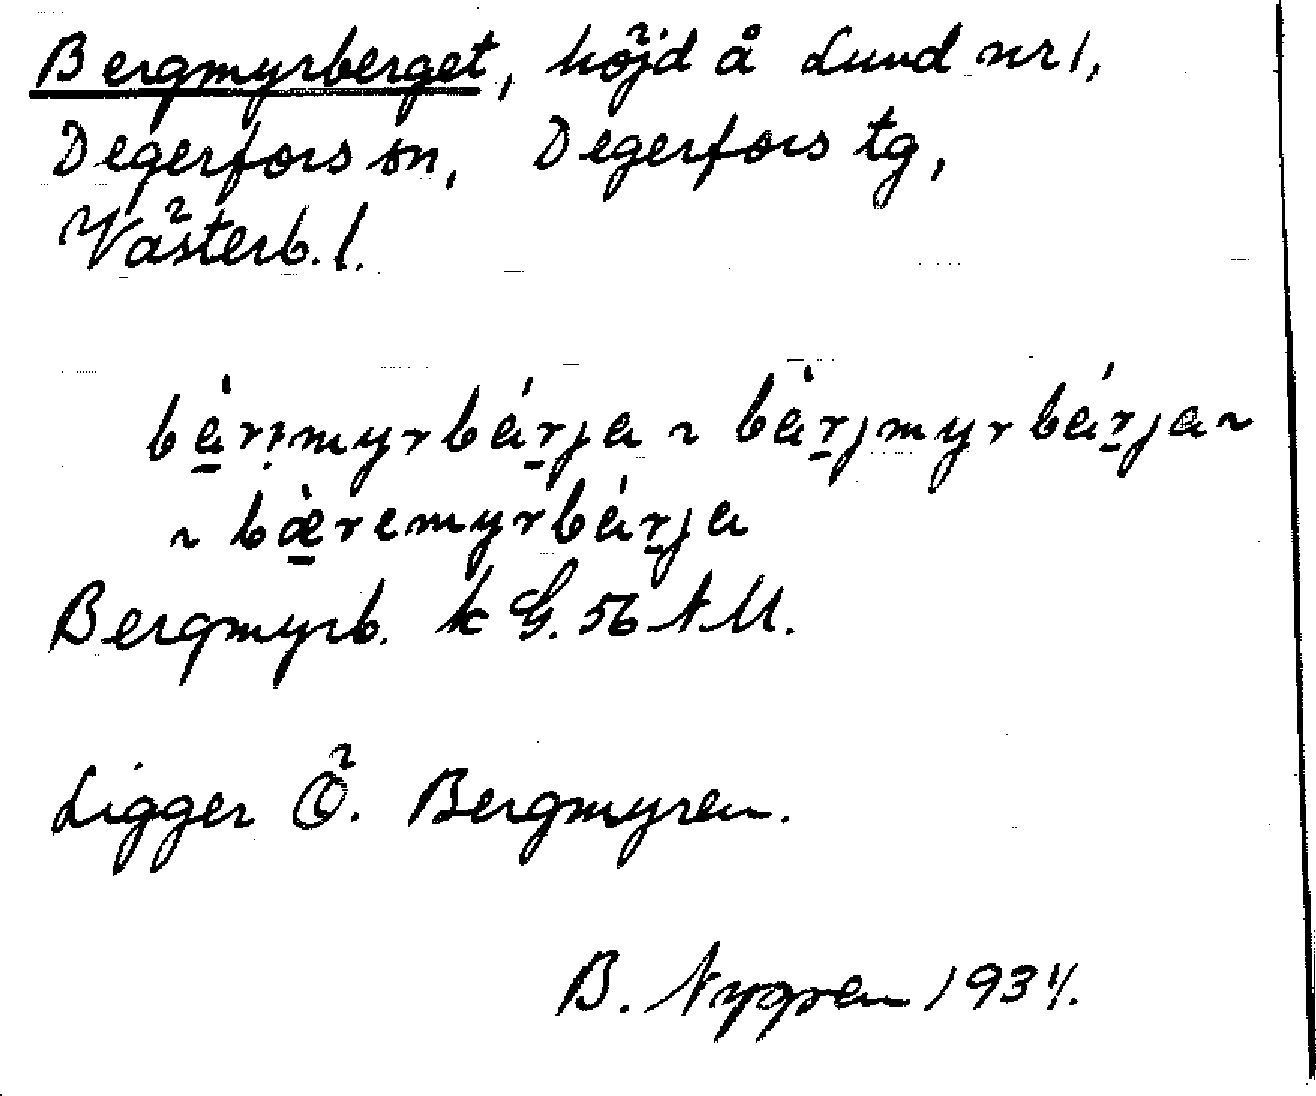 Bergmyrberget, höjd å Lund nr 1,
Degerfors sn, Degerfors tg,
Västerb. l.
bà̱rjmyrbáṟja ~ bàṟjmyrbáṟja ~
~ bæ̱̀remyrbáṟja
Bergmyrb. k G. 56 NU.
Ligger Ö. Bergmyren.
B. Nygren 1934.